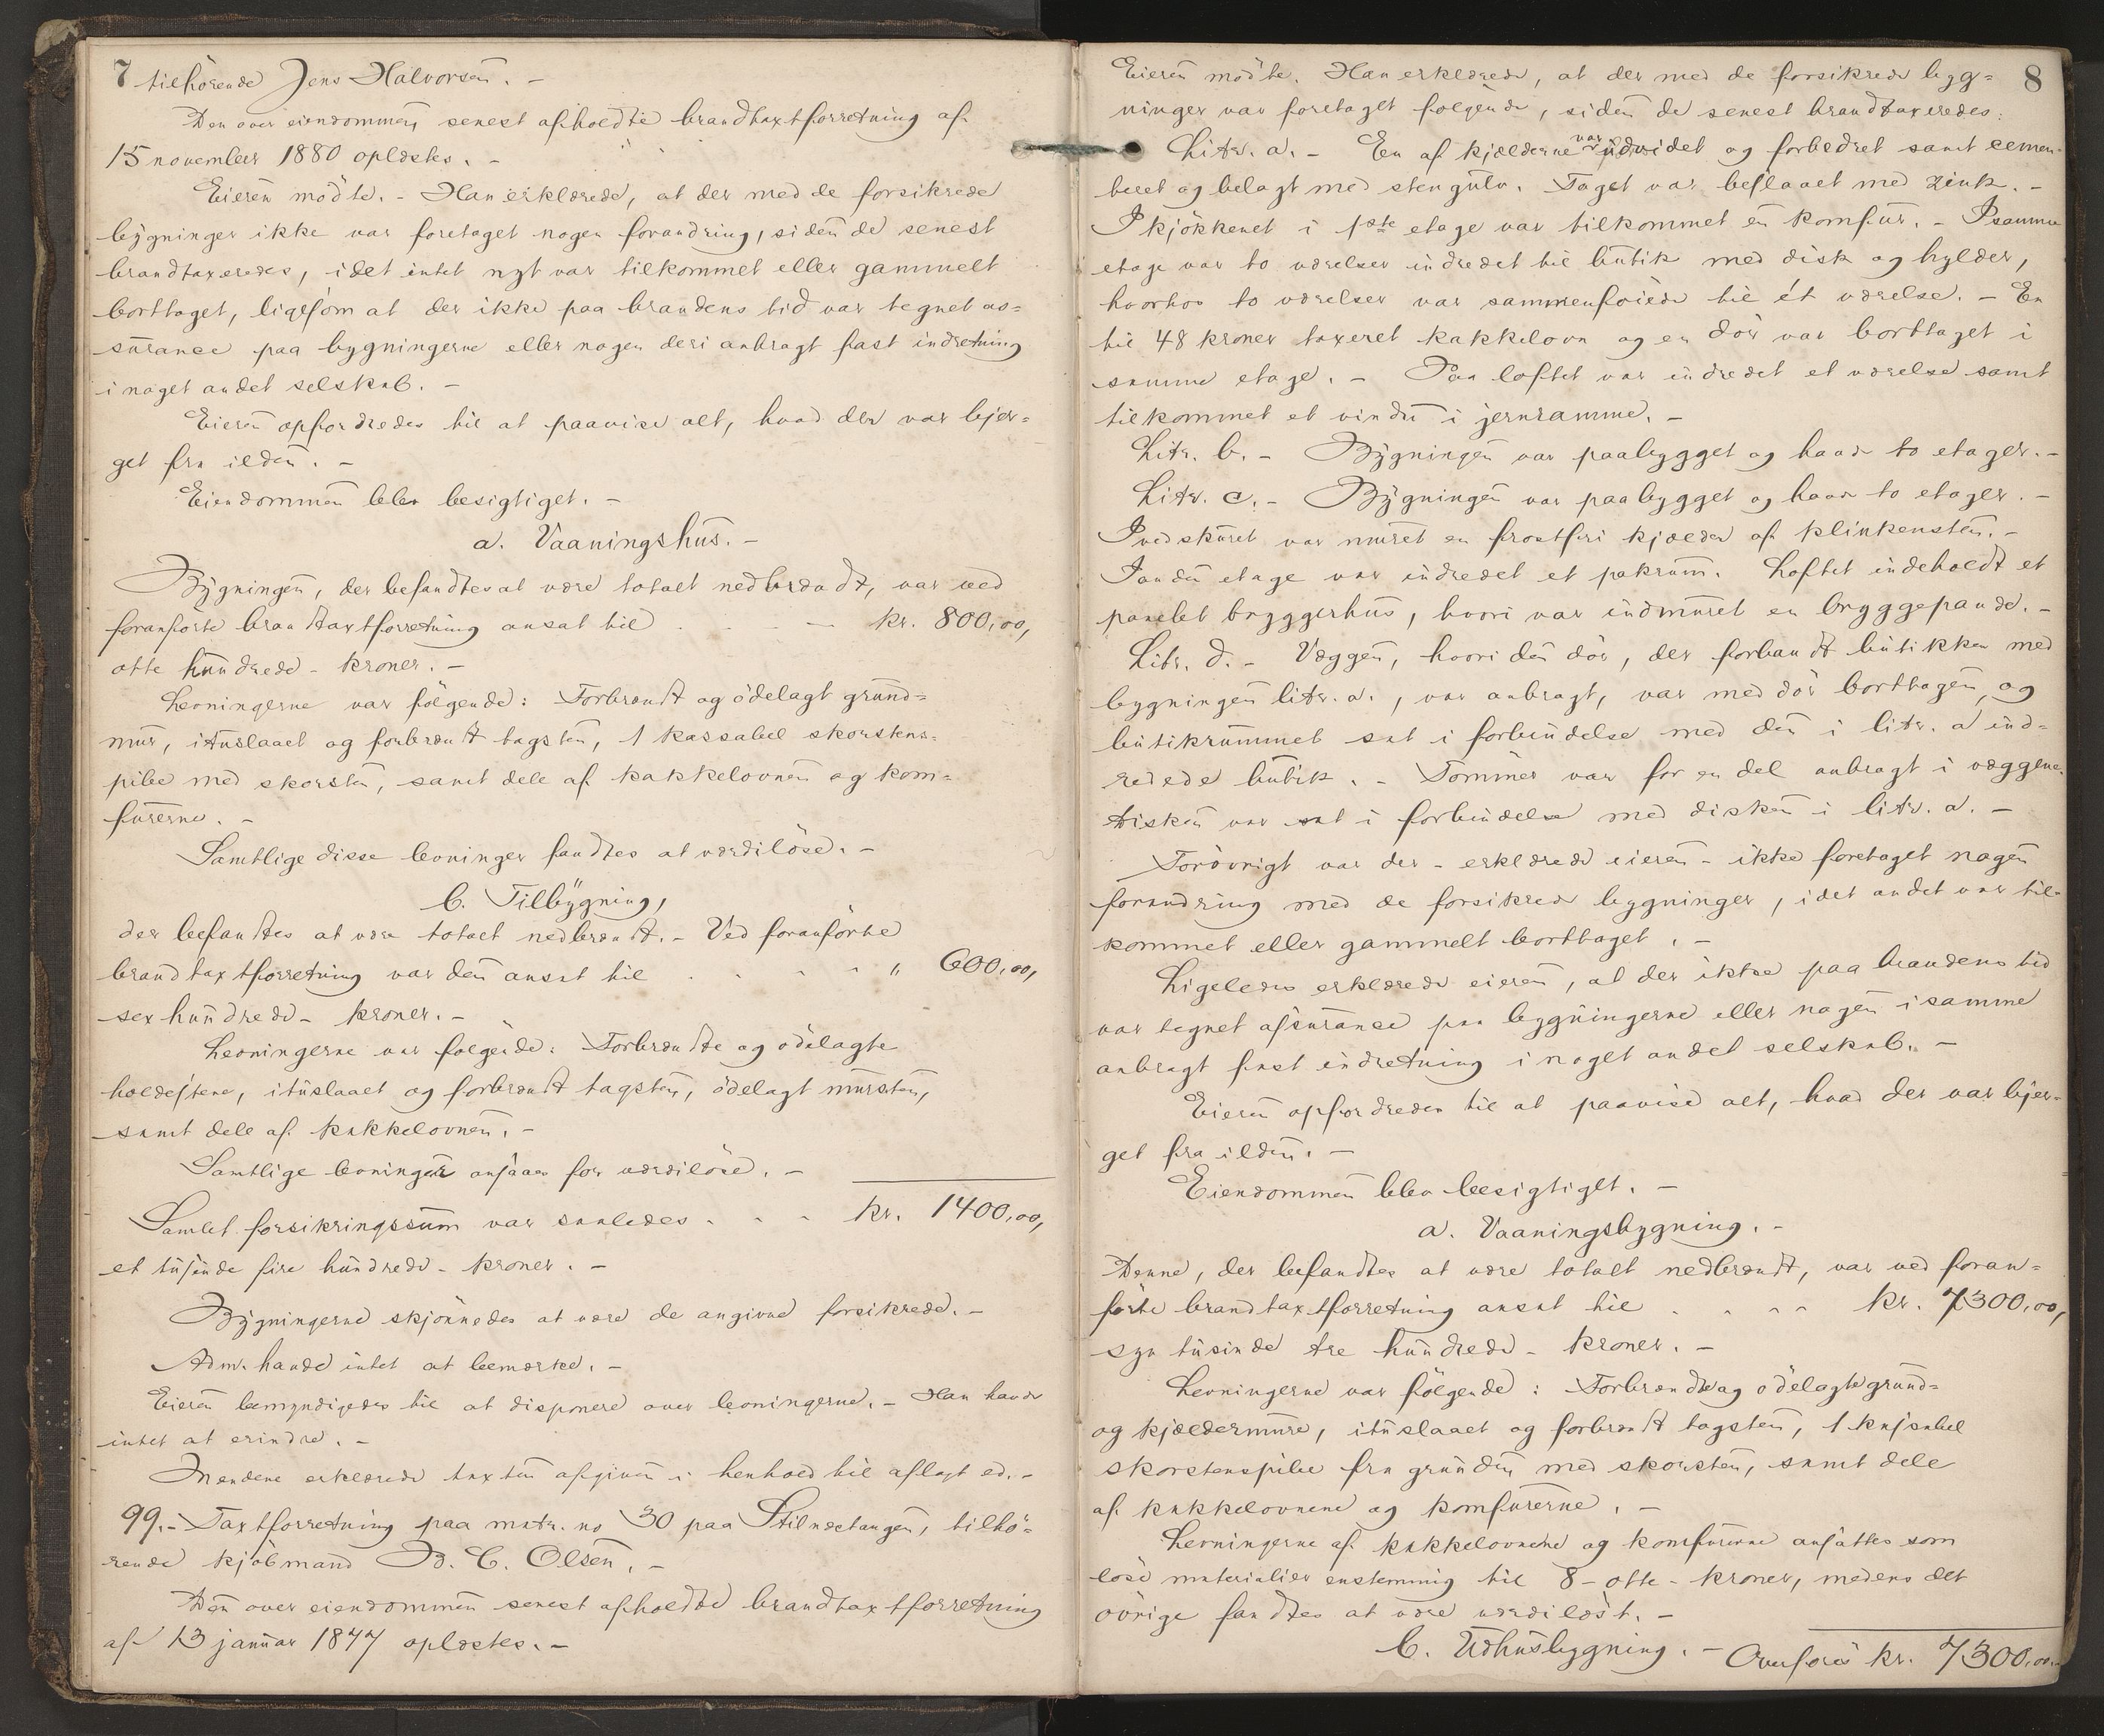 7 tilhörende Jens Halvorsen. -
Den over eiendommen senest afholdte brandtaxtforretning af
15 november 1880 oplæstes. -
Eieren mödte. - Han erklærede, at der med de forsikrede
bygninger ikke var foretaget nogen forandring, siden de senest
brandtaxeredes, idet intet nyt var tilkommet eller gammelt
borttaget, ligesom at der ikke paa brandens tid var tegnet as=
surance paa bygningerne eller nogen deri anbragt fast indretning
i noget andet selskab. -
Eieren opfordredes til at paavise alt, hvad der var bjer=
get fra ilden. -
Eiendommen blev besigtiget. -
a. Vaaningshus. -
Bygningen, der befandtes at være totalt nedbrændt, var ved
foranførte brandtaxtforretning ansat til . - - - kr. 800,00,
otte hundrede - kroner. -
Levningerne var følgende: Forbrændt og ödelagt grund=
mur, ituslaaet og forbrændt tagsten, 1 kassabel skorstens=
pibe med skorsten, samt dele af kakkelovnen og kom=
furerne. -
Samtlige disse levninger fandtes at værdilöse. -
b. Tilbygning,
der befandtes at være totalt nedbrændt. - Ved foranförte
brandtaxtforretning var den ansat til . - - - " 600,00,
sex hundrede - kroner. -
Levningerne var følgende: Forbrændte og ödelagte
holdestene, ituslaaet og forbrændt tagsten, ödelagt mursten,
samt dele af kakkelovnen. -
Samtlige levninger ansaaes for værdilöse. -
Samlet forsikringssum var saaledes . - - kr. 1400,00,
et tusinde fire hundrede - kroner. -
Bygningerne skjönnedes at være de angivne forsikrede. -
Adm. havde intet at bemærke. -
Eieren bemyndigedes til at disponere over levningerne. - Han havde
intet at erindre. -
Mændene erklærede taxten afgiven i henhold til aflagt ed. -
99. - Taxtforretning paa matr. no 30 paa Stilnestangen, tilhö=
rende kjöbmand B. C. Olsen. -
Den over eiendommen senest afholdte brandtaxtforretning
af 13 januar 1877 oplæstes. -
Eieren mödte. Han erklærede, at der med de forsikrede byg= 8
ninger var foretaget følgende, siden de senest brandtaxeredes:
Litr. a. - En af kjælderne var udvidet og forbedret samt cemen=
teret og belagt med stengulv. Taget var beslaaet med zink. -
I kjökkenet i 1ste etage var tilkommet en komfur. - I samme
etage var to værelser indredet til butik med disk og hylder,
hvorhos to værelser var sammenföiede til ét værelse. - En
til 48 kroner taxeret kakkelovn og en dör var borttaget i
samme etage. - Paa loftet var indredet et værelse samt
tilkommet et vindu i jernramme. -
Litr. b. - Bygningen var paabygget og havde to etager. -
Litr. c. - Bygningen var paabygget og havde to etager. -
I vedskuret var muret en frostfri kjælder af klinkensten. -
I anden etage var indredet et pakrum. Loftet indeholdt et
panelet bryggerhus, hvori var indmuret en bryggepande. -
Litr. d. - Væggen, hvori den dör, der forbandt butikken med
bygningen litr. a., var anbragt, var med dör borttagen, og
butikrummet sat i forbindelse med den i litr. a ind=
redede butik. - Tömmer var for en del anbragt i væggene.
Disken var sat i forbindelse med disken i litr. a. -
Forövrigt var der - erklærede eieren - ikke foretaget nogen
forandring med de forsikrede bygninger, idet andet var til=
kommet eller gammelt borttaget. -
Ligeledes erklærede eieren, at der ikke paa brandens tid
var tegnet assurance paa bygningerne eller nogen i samme
anbragt fast indretning i noget andet selskab. -
Eieren opfordredes til at paavise alt, hvad der var bjer=
get fra ilden. -
Eiendommen blev besigtiget. -
a. Vaaningsbygning. -
Denne, der befandtes at være totalt nedbrændt, var ved foran=
förte brandtaxtforretning ansat til . . - - kr. 7300,00,
syv tusinde tre hundrede - kroner. -
Levningerne var følgende: Forbrændte og ödelagte grund=
og kjældermure, ituslaaet og forbrændt tagsten, 1 kassabel
skorstenspibe fra grunden med skorsten, samt dele
af kakkelovnene og komfurerne. -
Levningerne af kakkelovnene og komfurerne ansattes som
löse materialier enstemmig til 8 - otte - kroner, medens det
övrige fandtes at være værdilöst. -
b. Udhusbygning. - Overföres kr. 7300,00.